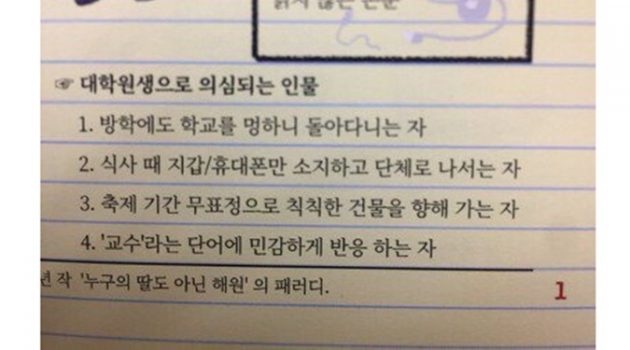 읽지 않은 논문
☞ 대학원생으로 의심되는 인물
1. 방학에도 학교를 멍하니 돌아다니는 자
2. 식사 때 지갑/휴대폰만 소지하고 단체로 나서는 자
3. 축제 기간 무표정으로 칙칙한 건물을 향해 가는 자
4. '교수'라는 단어에 민감하게 반응 하는 자
년 작 '누구의 딸도 아닌 해원' 의 패러디.
1